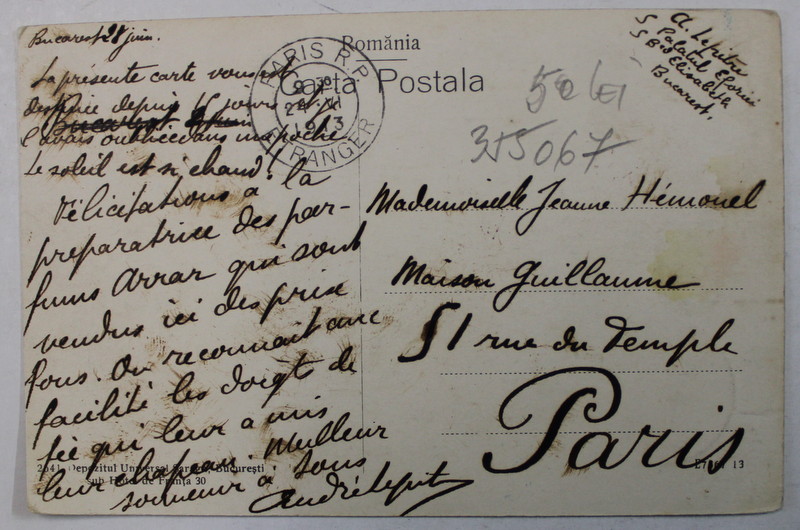 Bucarest 28 juin.
La présente carte vous est
destinée depuis 15 jours et je
l'avais oubliée dans ma poche
Le soleil est si chaud!
Félicitations à la
preparatrice des par-
fums Arraz qui sont
vendus ici des prix
fous. On reconnait avec
facilité les doigts de
fée qui leur a mis
leur chapeau. Meilleur
souvenir à tous
2641 Depozitul Universal Bucureşti
sub Hotel de Franţa 30
România
Carta Postala
PARIS R.P.
1913
ETRANGER
50 lei
355067
A. Lepitre
5 Palatul Eforiei
5 Bd Elisabeta
Bucarest.
Mademoiselle Jeanne Hémonel
Maison Guillaume
51 rue du Temple
Paris
13